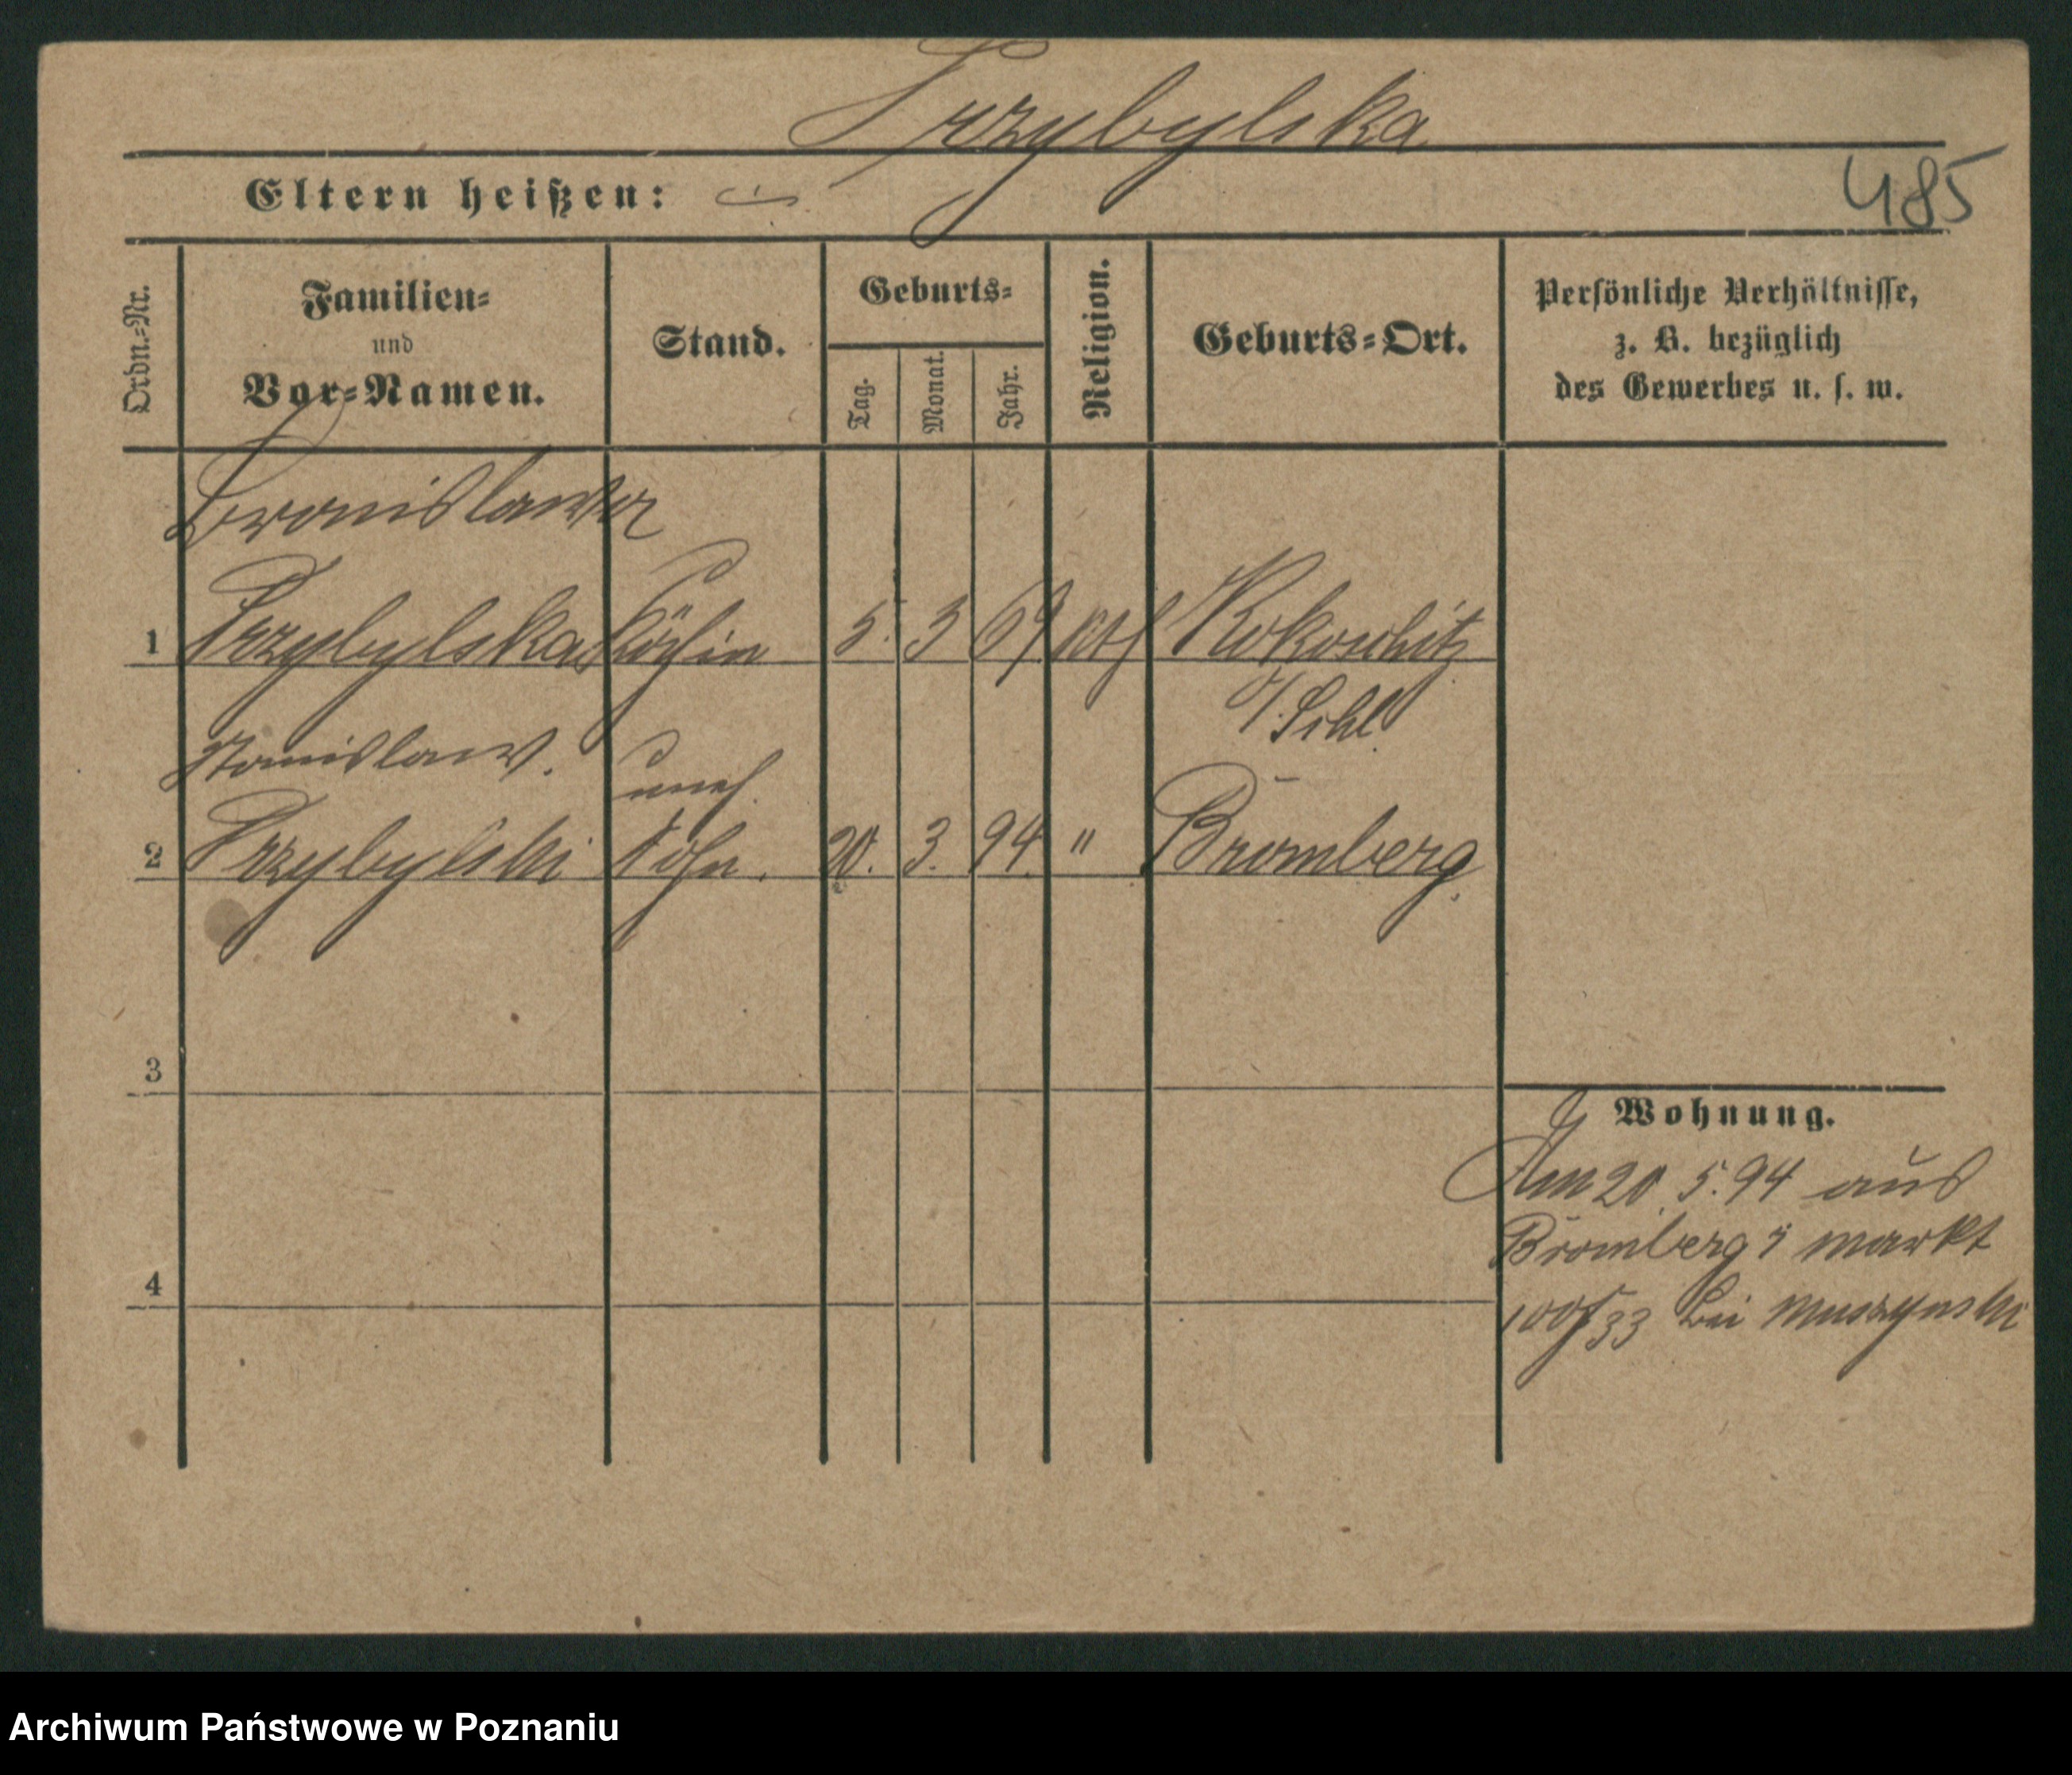 Przybylska
Eltern heißen:
485
Ordn.-Nr.
Familien-
und
Vor-Namen.
Stand.
Geburts-
Tag.
Monat.
Jahr.
Religion.
Geburts-Ort.
Persönliche Verhältnisse,
z. B. bezüglich
des Gewerbes u. s. w.
Bronislawa
1 Przybylska Köchin 5. 3 69 kth Kokoschütz
O/Schl
Stanislaw. uneh.
2 Przybylski Sohn. 20. 3. 94. " Bromberg.
3
Wohnung.
Am 20. 5. 94 aus
Bromberg markt
4
100/33 bei Muszynski
Archiwum Państwowe w Poznaniu